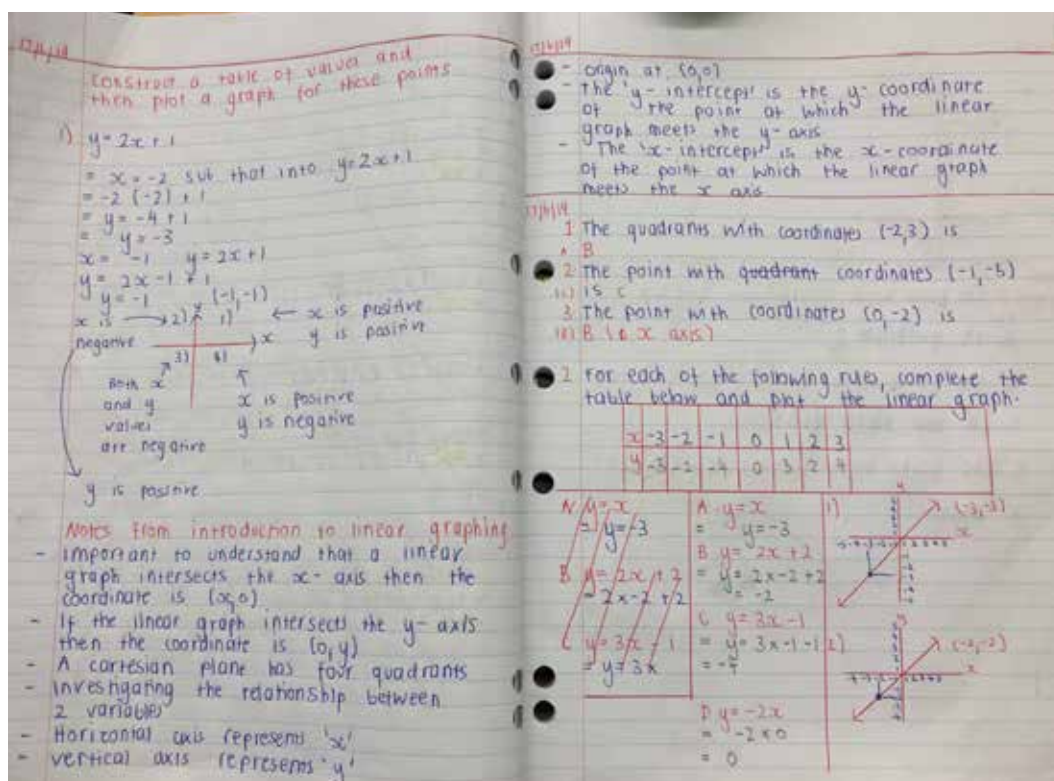 17/6/19
Construct a table of values and
then plot a graph for these points
1) y = 2x + 1
= x = -2 sub that into y = 2x + 1
= -2 (-2) + 1
= y = -4 + 1
= y = -3
x = -1 y = 2x + 1
y = 2x -1 + 1
y = -1 (-1, -1)
x is → 2) y 1) ← x is positive
negative x y is positive
3) 4)
Both x x is positive
and y y is negative
values
are negative
y is positive
Notes from introduction to linear graphing
- important to understand that a linear
graph intersects the x-axis then the
coordinate is (x,0)
- If the linear graph intersects the y-axis
then the coordinate is (0,y)
- A cartesian plane has four quadrants
- investigating the relationship between
2 variables
- Horizontal axis represents 'x'
- vertical axis represents 'y'
17/6/19
- origin at (0,0)
- The 'y-intercept' is the y-coordinate
of the point at which the linear
graph meets the y-axis
- The 'x-intercept' is the x-coordinate
of the point at which the linear graph
meets the x axis
17/6/19
1 The quadrants with coordinates (-2,3) is
B
2 The point with quadrant coordinates (-1,-5)
is C
3 The point with coordinates (0,-2) is
B x axis)
2 For each of the following rules, complete the
table below and plot the linear graph.
x -3 -2 -1 0 1 2 3
y -3 -2 -4 0 3 2 4
A y = x
= y = -3
B y = 2x + 2
= 2x -2 + 2
C y = 3x - 1
= y = 3x
A y = x
= y = -3
B y = 2x + 2
= y = 2x -2 + 2
= -2
C y = 3x - 1
= y = 3x -1 -1
D y = -2x
= -2 x 0
= 0
1) (-3,-3)
x
2) (-2,-2)
x